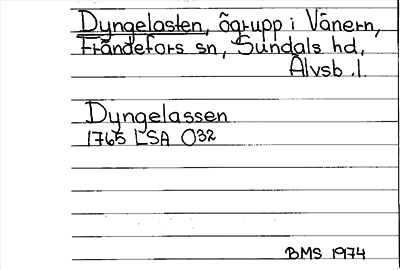 Dyngelasten, ögrupp i Vänern,
Frändefors sn, Sundals hd,
Älvsb. l.
Dyngelassen
1765 LSA O32
BMS 1974